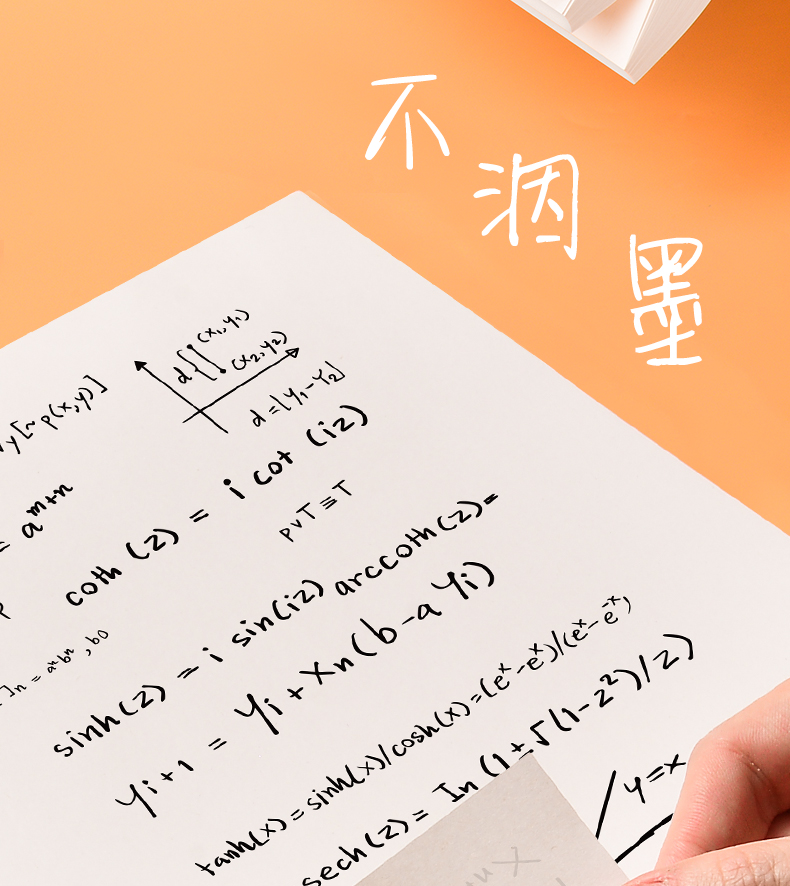 不
洇
墨
(x₁,y₁)
d{
(x₂,y₂)
d=|y₁-y₂|
y[~p(x,y)]
= aᵐ⁺ⁿ
coth(z) = i cot(iz)
pvT≡T
sinh(z) = i sin(iz) arccoth(z)=
In = aⁿbⁿ, b0
yi+1 = yi + xn(b-a yi)
tanh(x)=sinh(x)/cosh(x)=(eˣ-e^x)/(eˣ-e^-x)
sech(z)= In (1+√(1-z²)/z)
y=x